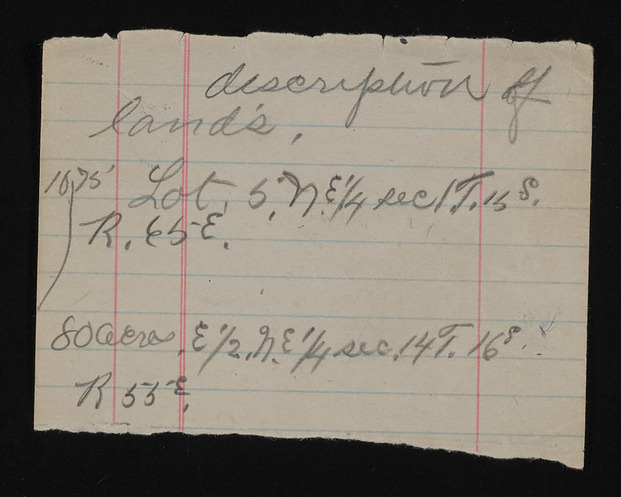 description of
lands,
Lot, 5, N.E1/4 sec 1 T. 15 S.
R. 65 E.
80 acres, E1/2, N.E1/4 sec. 14 T. 16 S.
R 55 E.